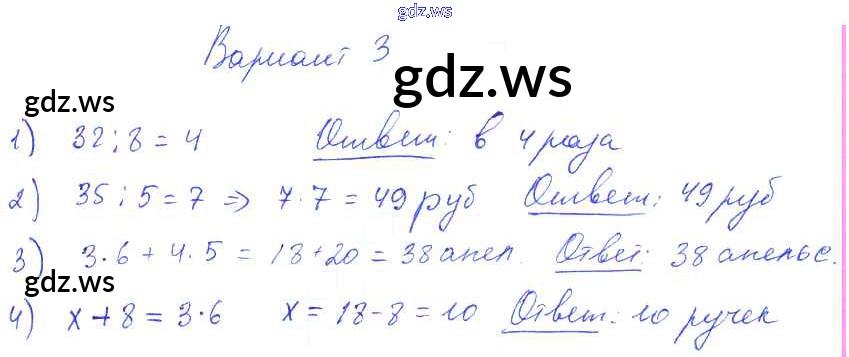 gdz.ws
Вариант 3
gdz.ws
gdz.ws
1) 32 : 8 = 4 Ответ: в 4 раза
2) 35 : 5 = 7 => 7 · 7 = 49 руб Ответ: 49 руб
3) 3 · 6 + 4 · 5 = 18 + 20 = 38 апел. Ответ: 38 апельс.
gdz.ws
gdz.ws
4) x + 8 = 3 · 6 x = 18 - 8 = 10 Ответ: 10 ручек